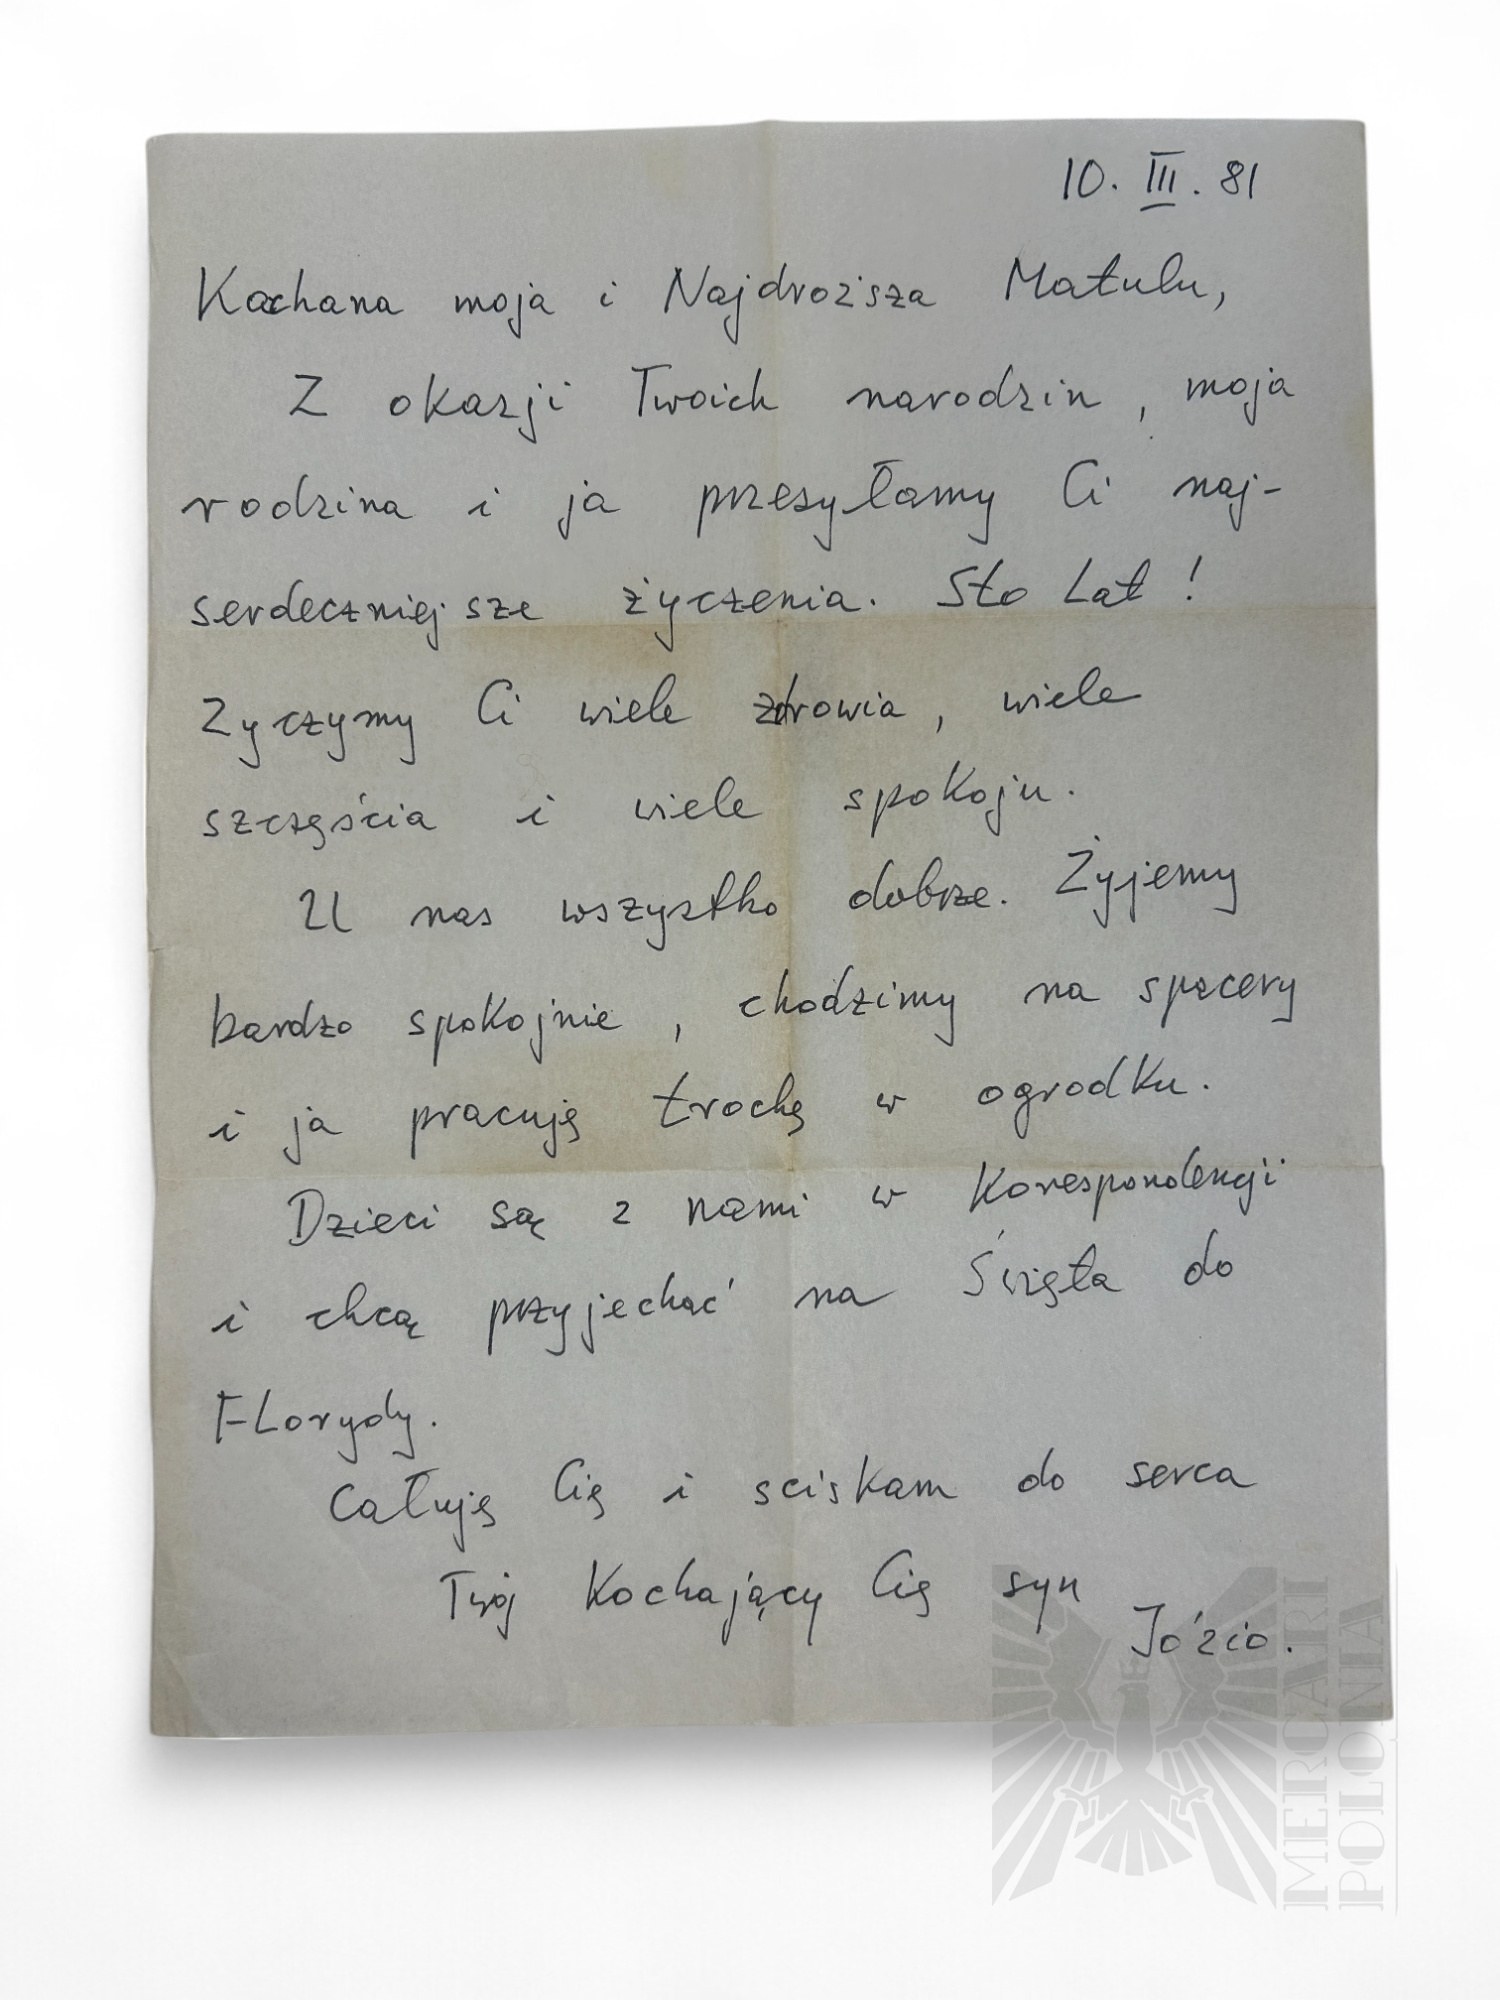 10. III. 81
Kochana moja i Najdroższa Matulu,
Z okazji Twoich narodzin, moja
rodzina i ja przesyłamy Ci naj-
serdeczniejsze życzenia. Sto Lat!
Zyczymy Ci wiele zdrowia, wiele
szczęścia i wiele spokoju.
U nas wszystko dobrze. Żyjemy
bardzo spokojnie, chodzimy na spacery
i ja pracuję trochę w ogrodku.
Dzieci są z nami w Korespondencji
i chcą przyjechać na Święta do
Florydy.
Całuję Cię i sciskam do serca
Twój Kochający Cię syn
Józio.
MERCARI
POLONIA